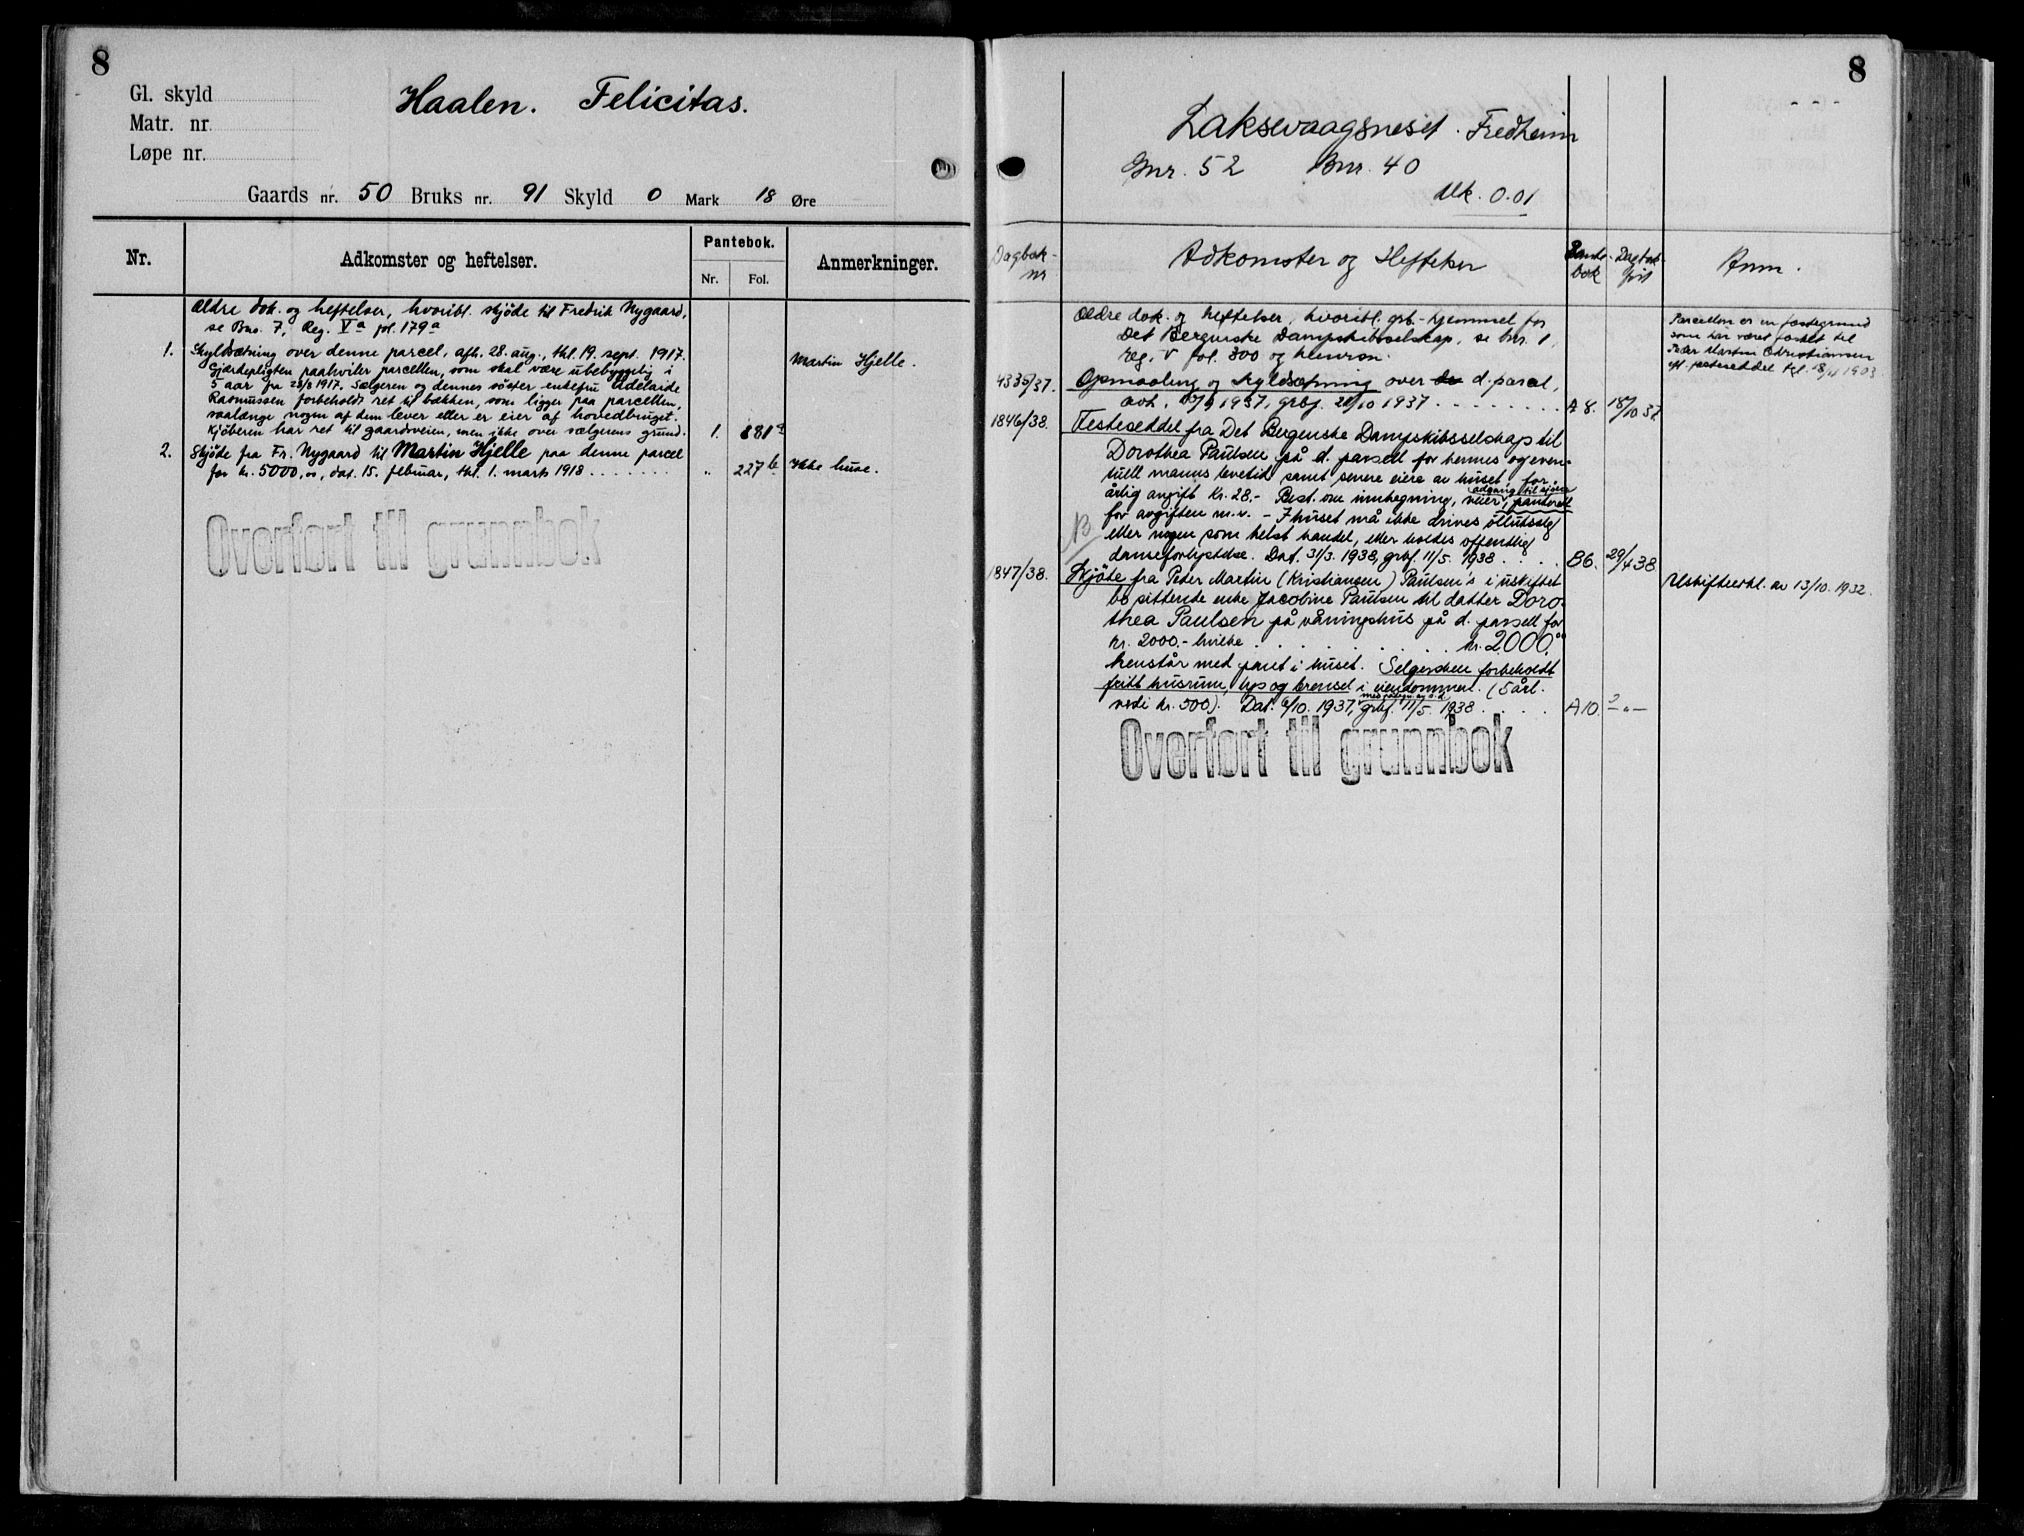 8
Gl. skyld
Matr. nr.
Løpe nr.
Haalen. Felicitas.
Gaards nr. 50 Bruks nr. 91 Skyld 0 Mark 18 Øre
Nr.
Adkomster og heftelser.
Pantebok.
Nr.
Fol.
Anmerkninger.
Ældre dok. og heftelser, hvoribl. skjøde til Fredrik Nygaard,
se Bno. 7, Reg. Va fol. 179a
1. Skyldsætning over denne parcel, afh. 28. aug., thl. 19. sept. 1917.
Gjærdepligten paahviler parcellen, som skal være ubebyggelig i
5 aar fra 28/8 1917. Sælgeren og dennes söster enkefru Adelaide
Rasmussen forbeholdt ret til bækken, som ligger paa parcellen,
saalænge nogen af dem lever eller er eier af hovedbruget.
Kjøberen har ret til gaardsveien, men ikke over sælgerens grund. 1. 881a
Martin Hjelle.
2. Skjøde fra Fr. Nygaard til Martin Hjelle paa denne parcel
for kr. 5000,00, dat. 15. februar, thl. 1. marts 1918 . . . . . . . " 227b Ikke huse.
Overført til grunnbok
8
- - -
Laksevaagsneset. Fredheim
Gnr. 52 Bnr. 40
Mk. 0.01
Dagbok-
nr
Adkomster og Heftelser
Pante-
bok
Dagbok-
Anm.
Ældre dok. og heftelser, hvoribl. grb.-hjemmel for
Det Bergenske Dampskibsselskap, se bnr. 1,
reg. V fol. 300 og henvisn.
Parcellen er en fæstegrund
som har været fæstet til
Peder Martin Christiansen
1903
4335/37. Opmaaling og skyldsætning over d. parcel,
avh. 1937, grbf. 1937 . . . . . . . . A 8. 18/10 37.
1846/38. Festeseddel fra Det Bergenske Dampskibsselskap til
Dorothea Paulsen på d. parsell for hennes og even-
tuell manns levetid samt senere eiere av huset for
årlig avgift Kr. 28,- Best. om innhegning, veier, adgang til sjøen, panterett
for avgiften m.v. - I huset må ikke drives ölutsalg
eller nogen som helst handel, eller holdes offentlig
danseforlystelse. Dat. 31/3. 1938, grbf. 11/5. 1938 . . . . B6. 29/4 38
1847/38. Skjöte fra Peder Martin (Kristiansen) Paulsen's i uskiftet
bo sittende enke Jacobine Paulsen til datter Doro-
thea Paulsen på våningshus på d. parsell for
kr. 2000.- hvilke . . . . . . . . . . kr. 2000.00
henstår med pant i huset. Selgersken forbeholdt
fritt husrum, lys og brensel i eiendommen. (5 årl.
verdi kr. 500). Dat. 6/10. 1937, grbf. 11/5. 1938 . . . . . A10. — " —
Uskifteerkl. av 13/10. 1932.
Overført til grunnbok